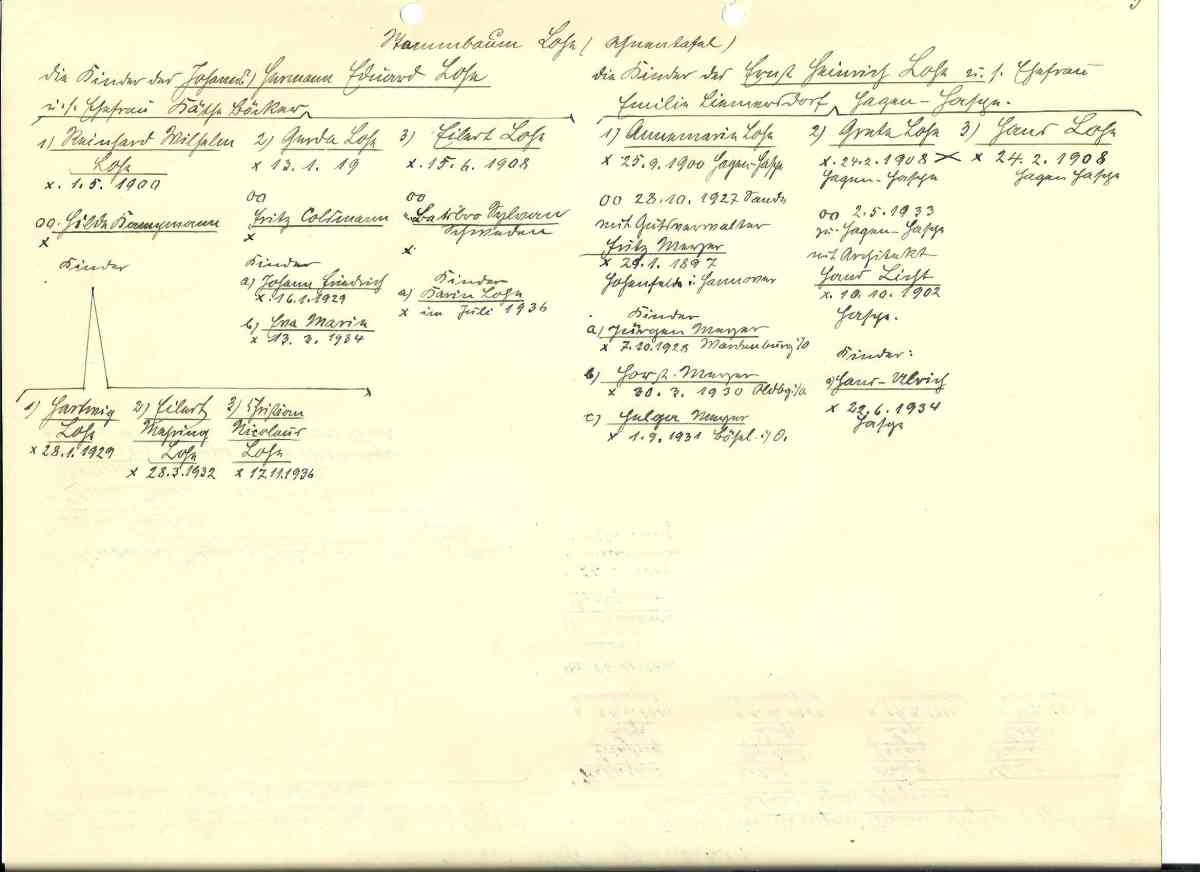 Stammbaum Lohe (Ahnentafel)
die Kinder des Johannes Hermann Eduard Lohe
u. s. Ehefrau Käthe Böcker
1) Reinhard Wilhelm
Lohe
x. 1.5. 1900
oo. Hilde Kampmann
x
Kinder
1) Hartwig
Lohe
x 28.1.1929
2) Eilert
Lohe
x 28.3.1932
3) Christian
Nicolaus
Lohe
x 17.11.1936
2) Gerda Lohe
x 13. 1. 19
oo
Fritz Colsmann
x
Kinder
a) Johann Friedrich
x. 16.1.1929
b) Eva Marie
x 13. 3. 1934
3) Eilert Lohe
x. 15. 6. 1908
oo
Schweden
x.
Kinder
a) Karin Lohe
x im Juli 1936
die Kinder des Ernst Heinrich Lohe u. s. Ehefrau
Emilie Liemersdorf Hagen-Haspe.
1) Annemarie Lohe
x 25.9. 1900 Hagen-Haspe
oo 28.10.1927 Sande
mit Gutsverwalter
Fritz Meyer
x 29.1. 1897
Hohenfelde i. Hannover
Kinder
a) Jürgen Meyer
x 7.10.1928 Wardenburg i/O
b) Horst Meyer
x 30. 3. 1930 Oldbg i/O
c) Helga Meyer
x 1.9.1931 Bösel i/O.
2) Grete Lohe
x. 24.2. 1908
Hagen-Haspe
oo 2.5.1933
zu Hagen-Haspe
mit Architekt
Hans Licht
x. 10. 10. 1902
Haspe.
Kinder:
a) Hans-Ulrich
x 22.6. 1934
Haspe
3) Hans Lohe
x 24. 2. 1908
Hagen Haspe